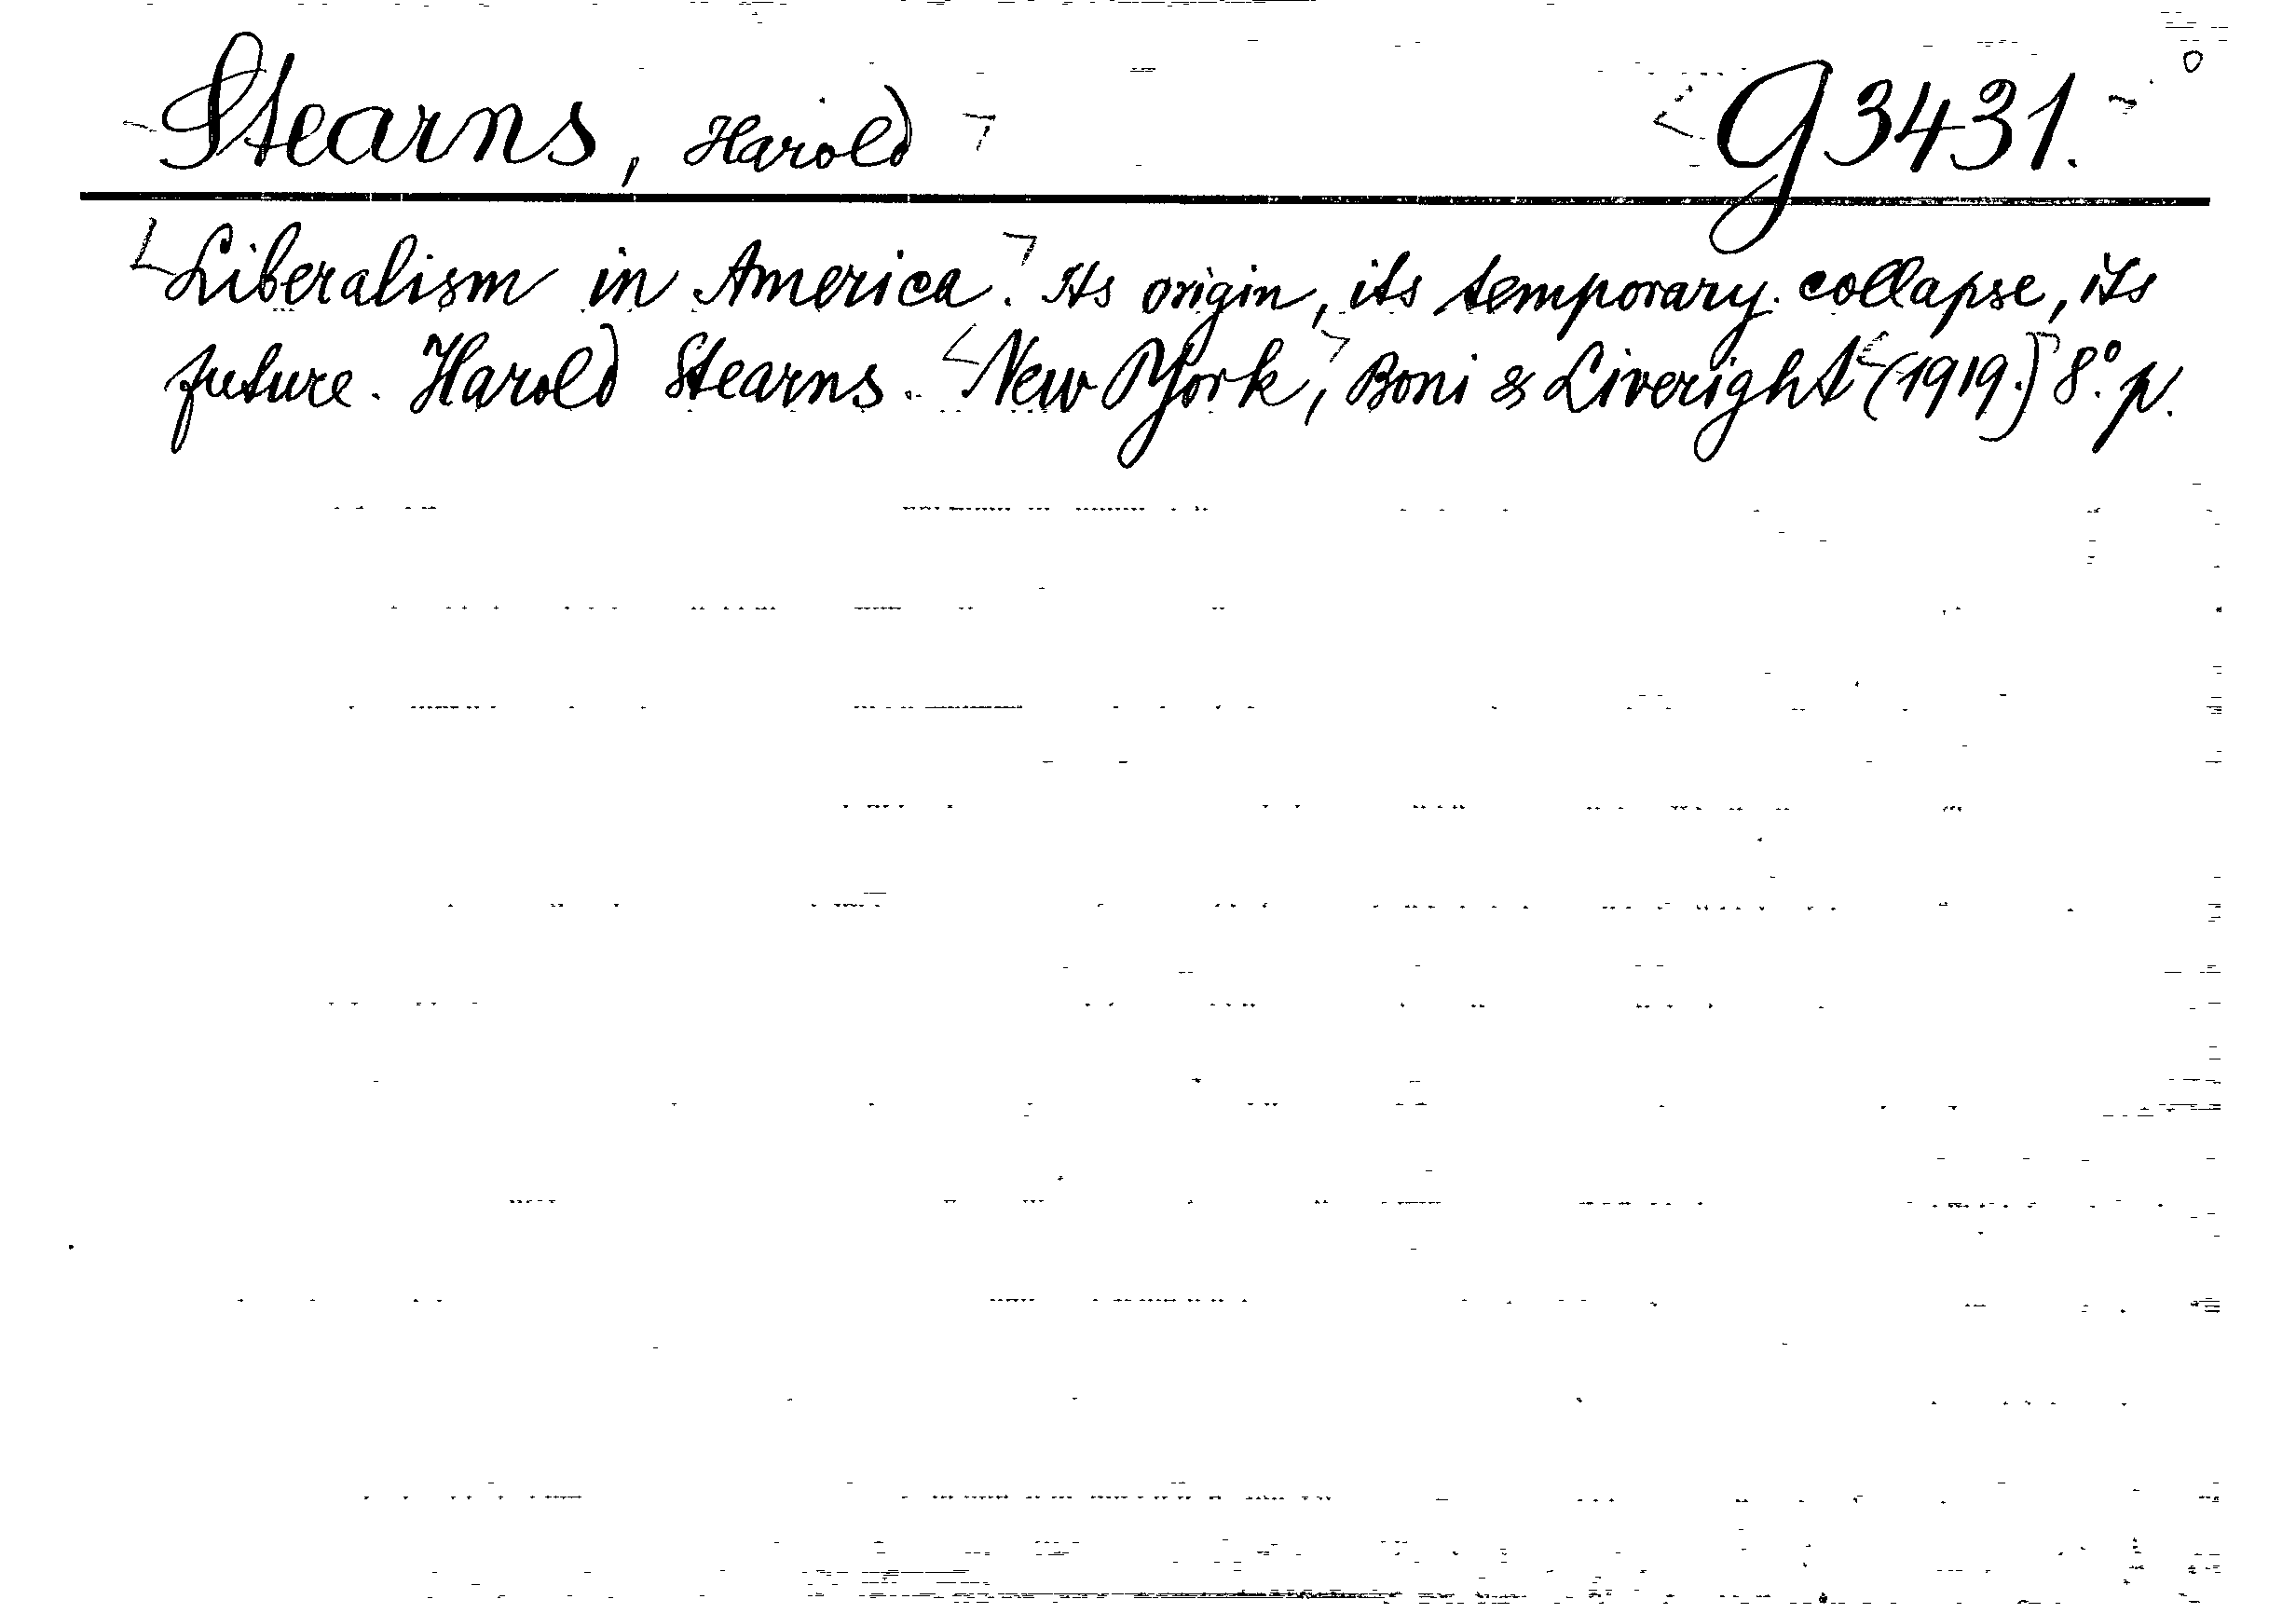 Stearns, Harold G 3431.
Liberalism in America. Its origin, its temporary collapse, its
future. Harold Stearns. New York, Boni & Liveright (1919.) 8° p.